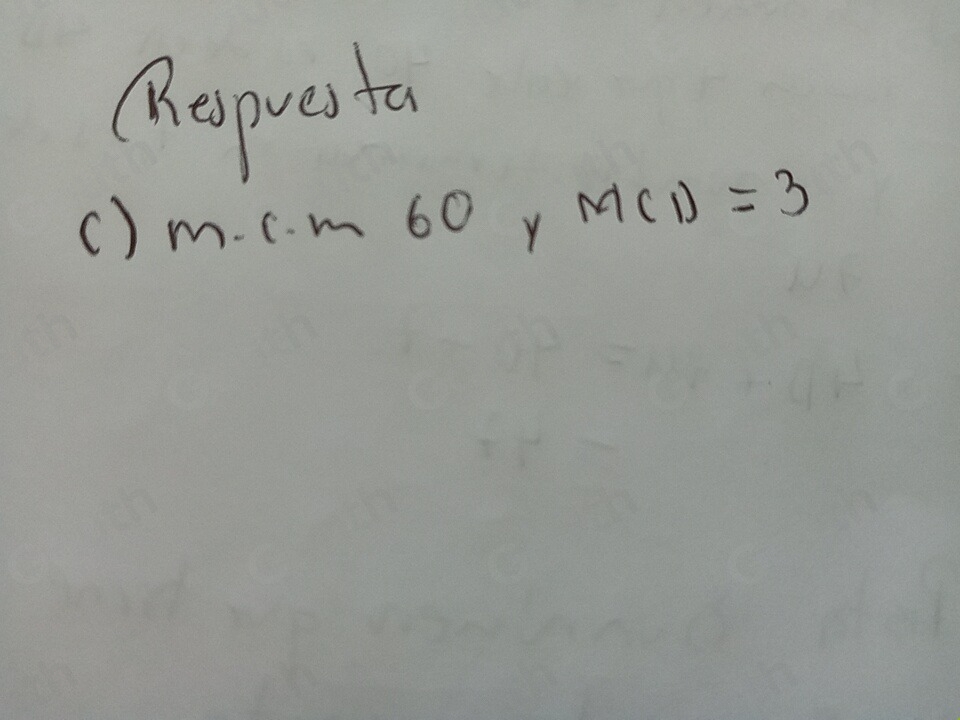 Respuesta
c) m.c.m 60 y MCD = 3